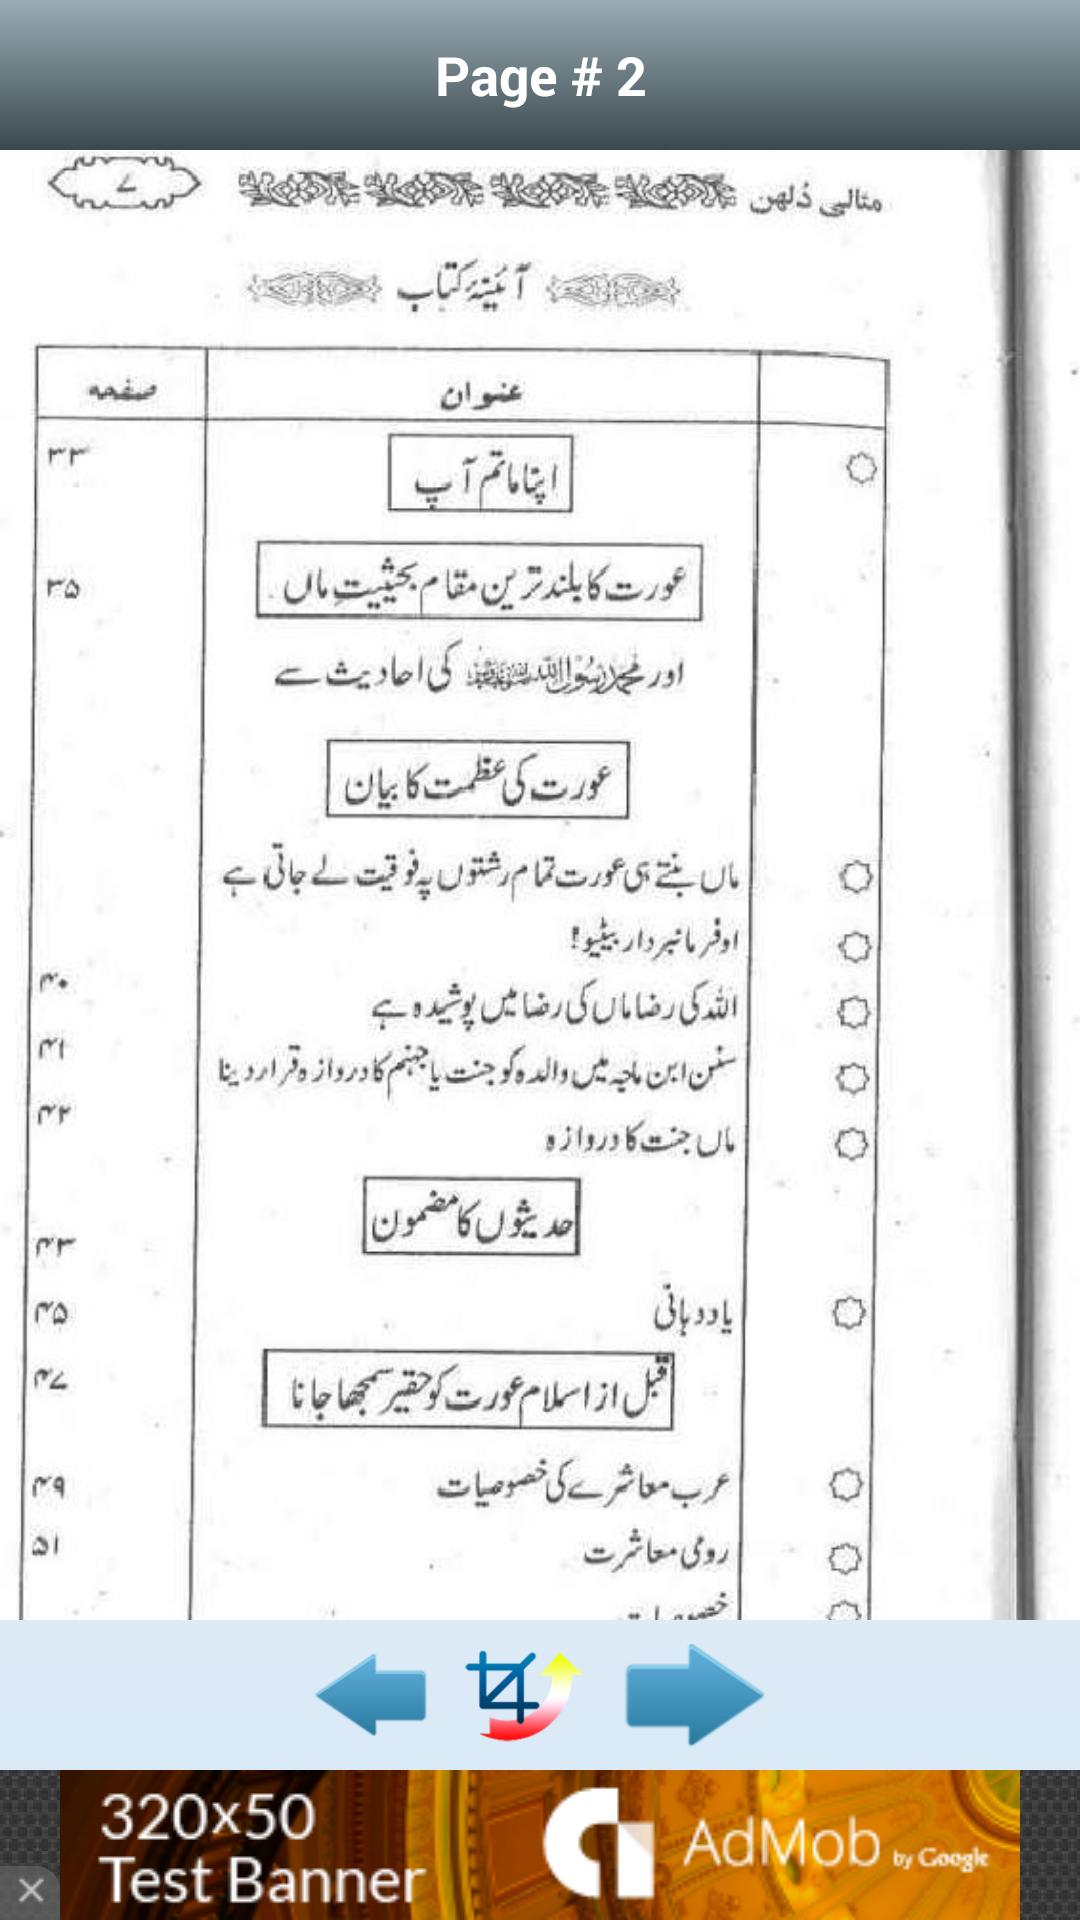 Page # 2
مثالی دُلھن ۷
آئینۂ کتاب
عنوان صفحہ
اپنا ماتم آپ ۳۳
عورت کا بلند ترین مقام بحیثیتِ ماں ۳۵
اور محمد رسول اللہ ﷺ کی احادیث سے
عورت کی عظمت کا بیان
ماں بنتے ہی عورت تمام رشتوں پہ فوقیت لے جاتی ہے
او فرمانبردار بیٹیو!
۴۰
اللہ کی رضا ماں کی رضا میں پوشیدہ ہے
۴۱
سنن ابن ماجہ میں والدہ کو جنت یا جہنم کا دروازہ قرار دینا
۴۲
ماں جنت کا دروازہ
حدیثوں کا مضمون
۴۳
یاددہانی ۴۵
قبل از اسلام عورت کو حقیر سمجھا جانا ۴۷
عرب معاشرے کی خصوصیات ۴۹
رومی معاشرت ۵۱
320x50
Test Banner
AdMob by Google